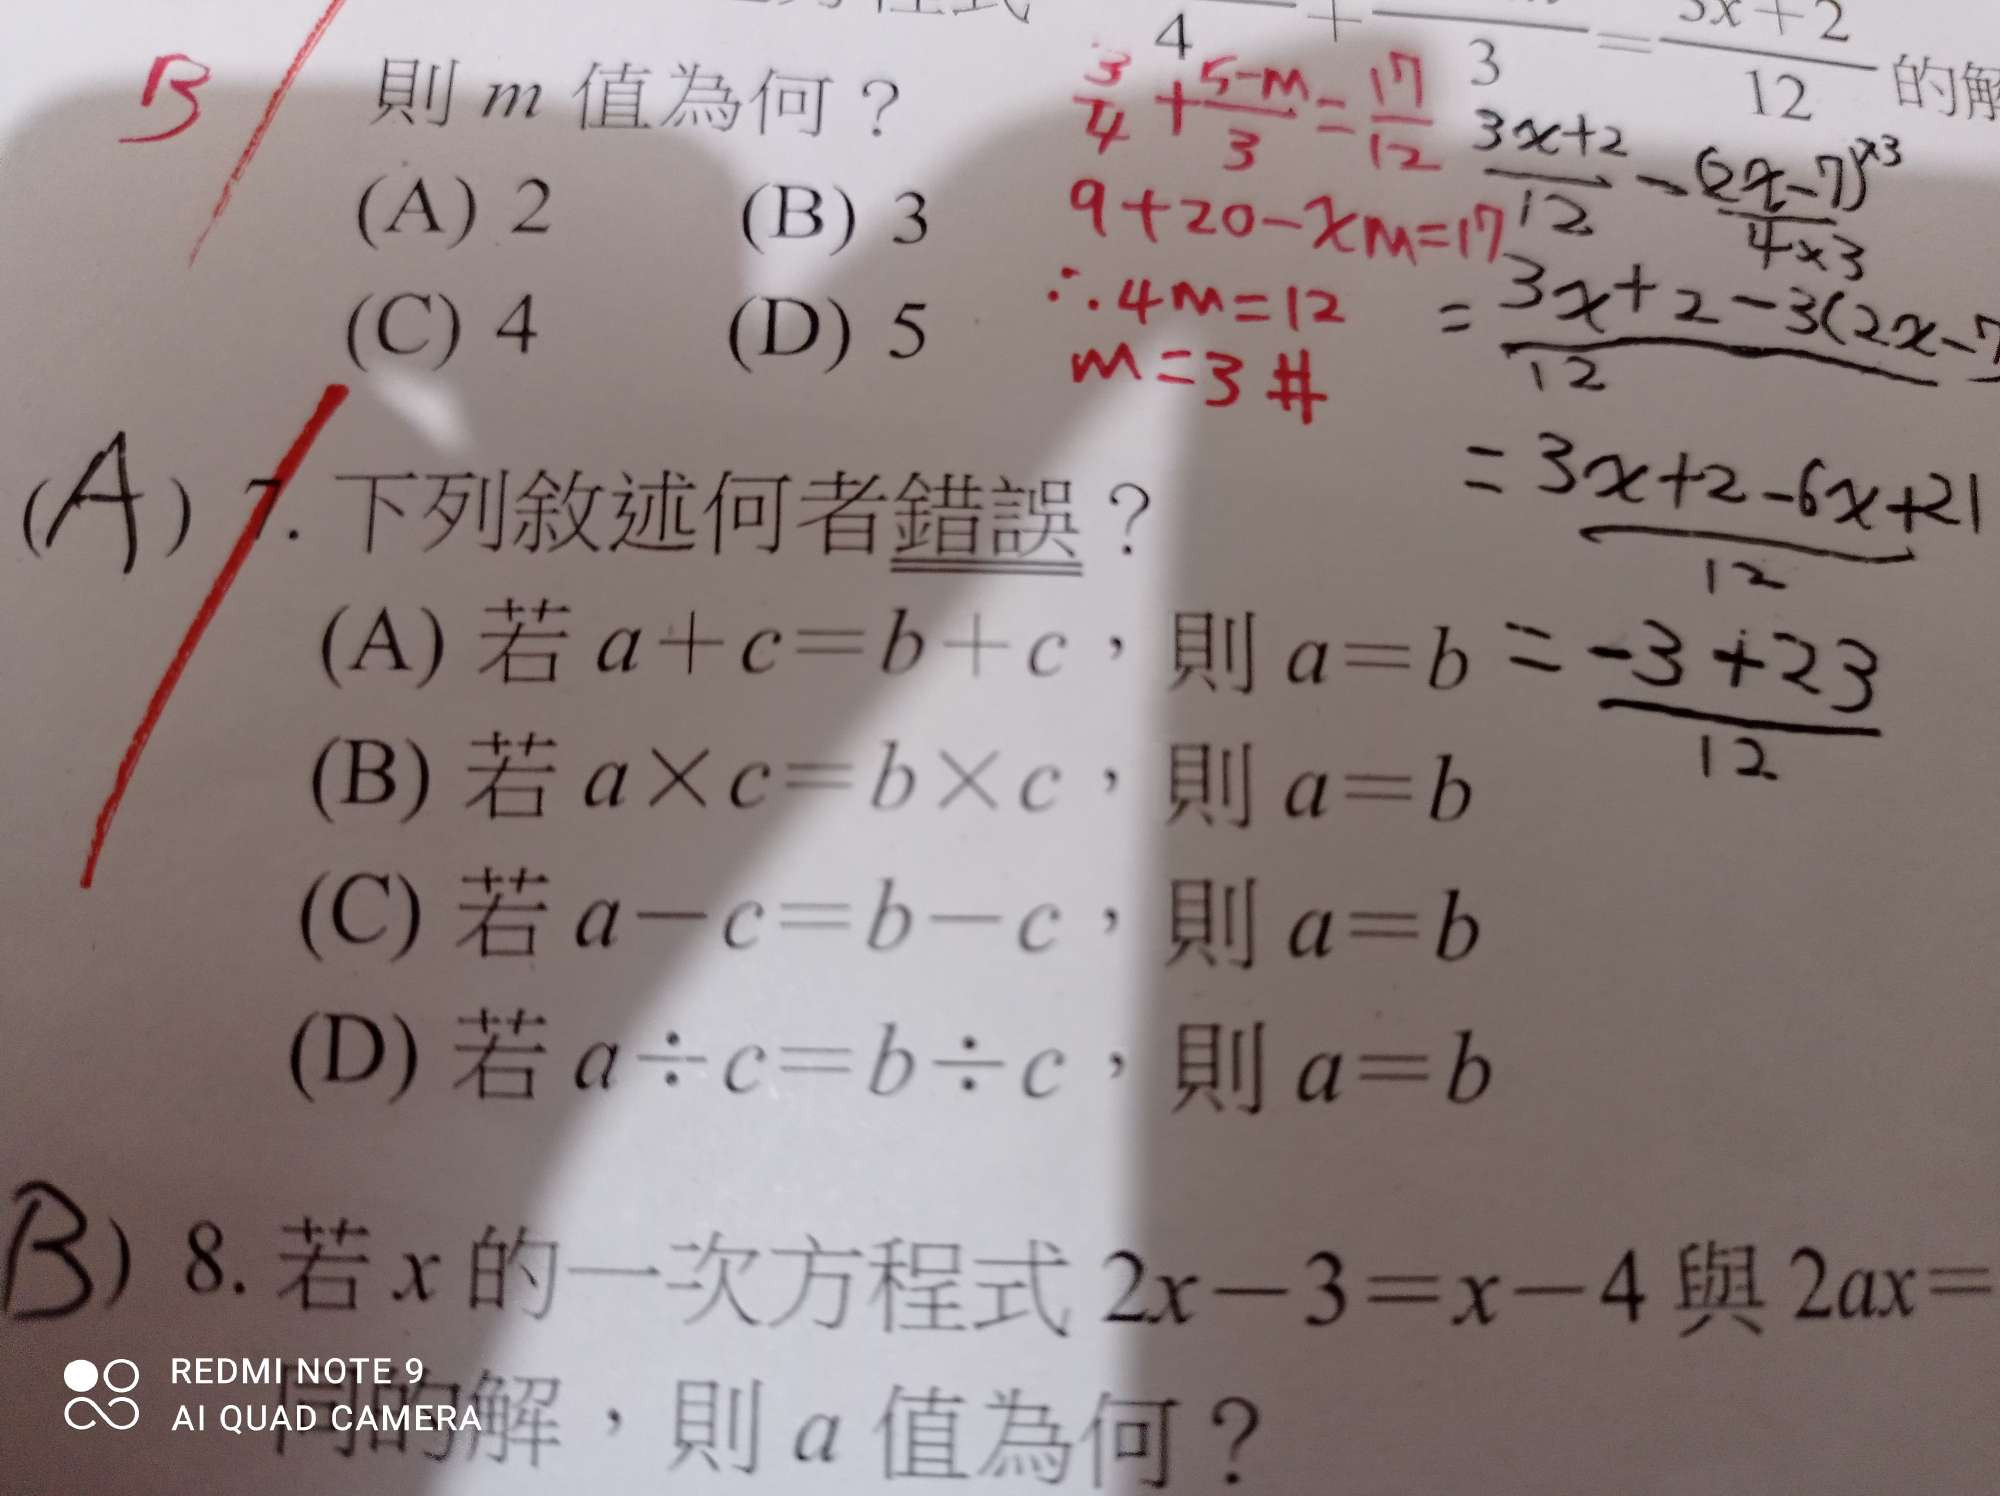 3x+2
4 + 3 = 12 的解
B 則 m 值為何？
(A) 2 (B) 3
(C) 4 (D) 5
3/4 + 5-m/3 = 17/12
9+20-xm=17
∴4m=12
m=3#
3x+2/12 - (2x-7)×3/4×3
= 3x+2-3(2x-7/12
= 3x+2-6x+21/12
= -3+23/12
(A) 7. 下列敘述何者錯誤？
(A) 若 a+c=b+c，則 a=b
(B) 若 a×c=b×c，則 a=b
(C) 若 a-c=b-c，則 a=b
(D) 若 a÷c=b÷c，則 a=b
B) 8. 若 x 的一次方程式 2x-3=x-4 與 2ax=
同的解，則 a 值為何？
REDMI NOTE 9
AI QUAD CAMERA